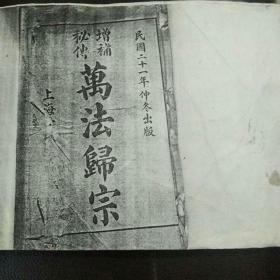 民國二十一年仲冬出版
增補
秘傳
萬法歸宗
上海